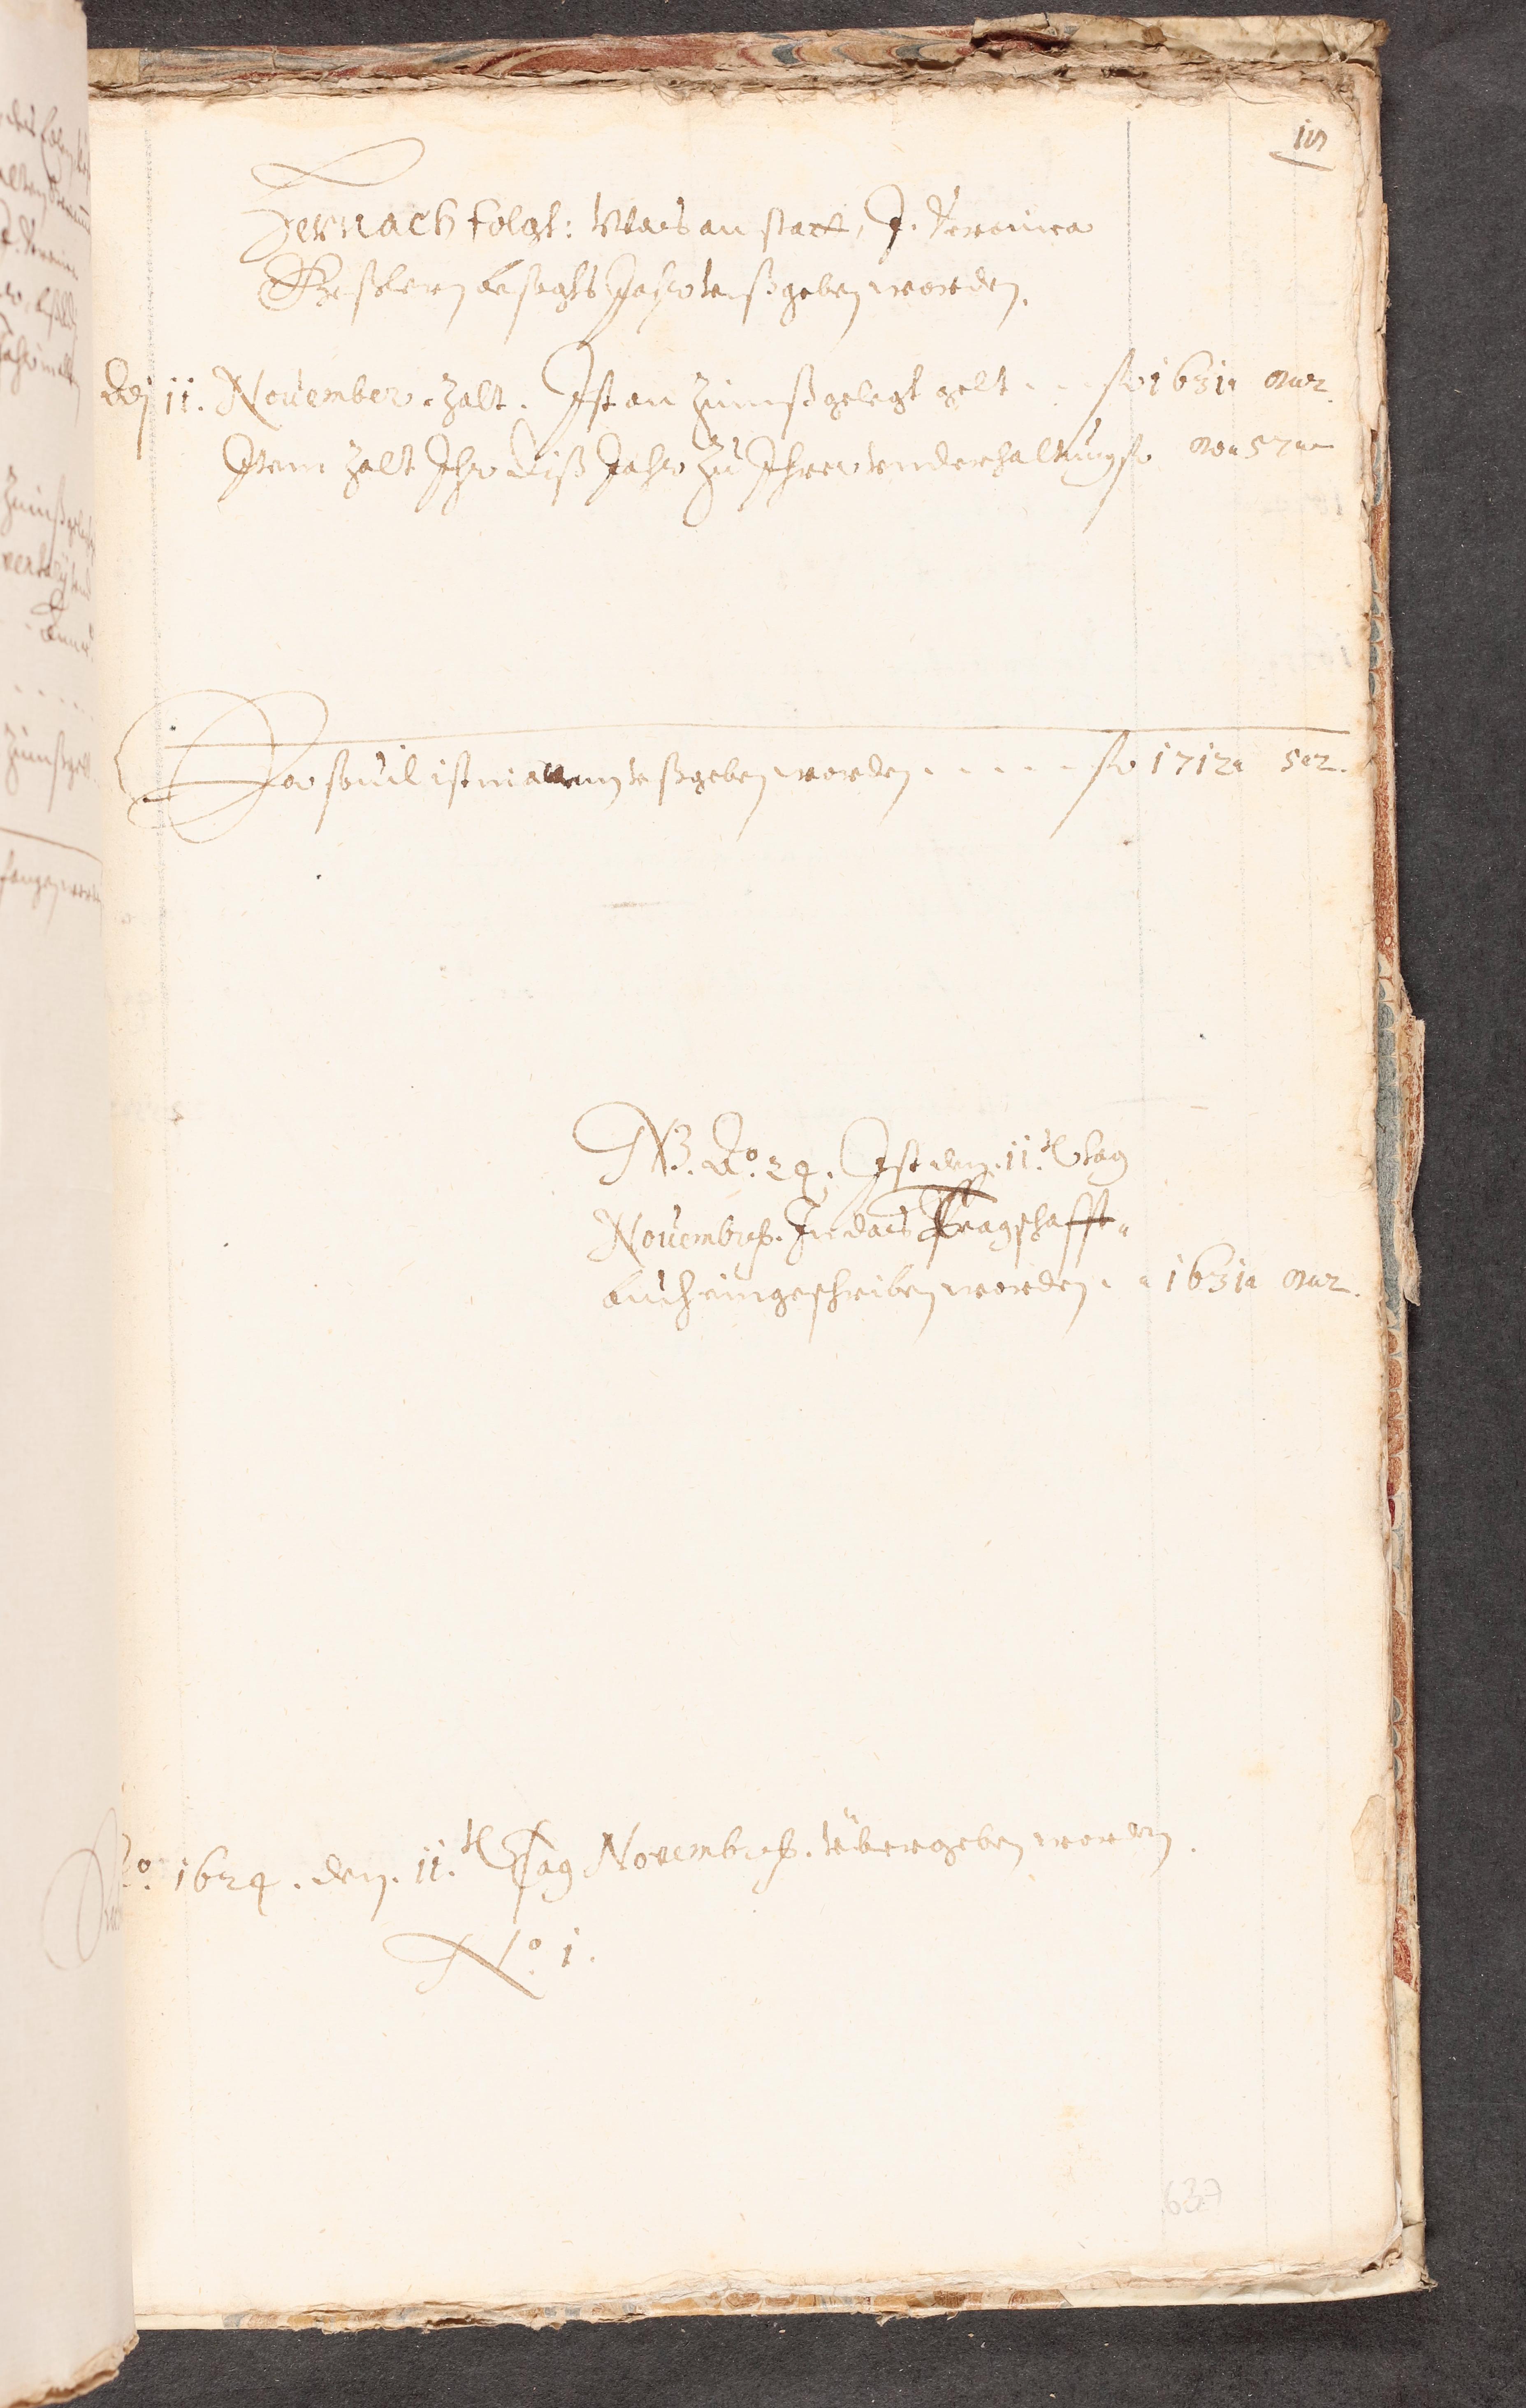 Hernach folgt: Was an statt, J. Veronica
Keßlern besagts Jahr ausgeben worden.
Adj 11. November. Zalt. Ist an Zünnß gelegt gelt - - - fl 1631
Item Zalt Ihr diß Jahr Zu Ihrer underhaltung fl
So souil ist in allem außgeben worden . - - - - fl 1712
NB. Ao. 24. Ist den. 11.t Tag
Nouembris. In das Pflegschafft-
buch eingeschriben worden - - 1631
1624. den. 11.t Tag Novembris. übergeben worden.
No. 1.
637